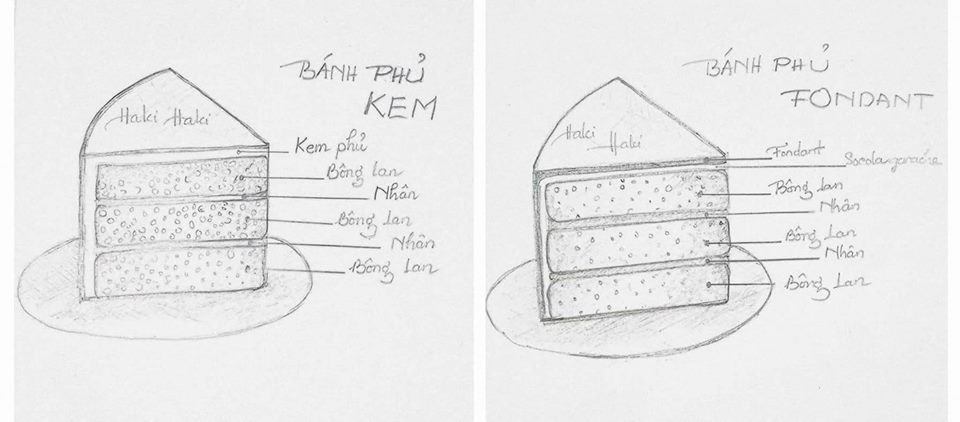 BÁNH PHỦ
KEM
Haki Haki
Kem phủ
Bông lan
Nhân
Bông lan
Nhân
Bông lan
BÁNH PHỦ
FONDANT
Haki
Haki
Fondant
Socola ganache
Bông lan
Nhân
Bông lan
Nhân
Bông lan